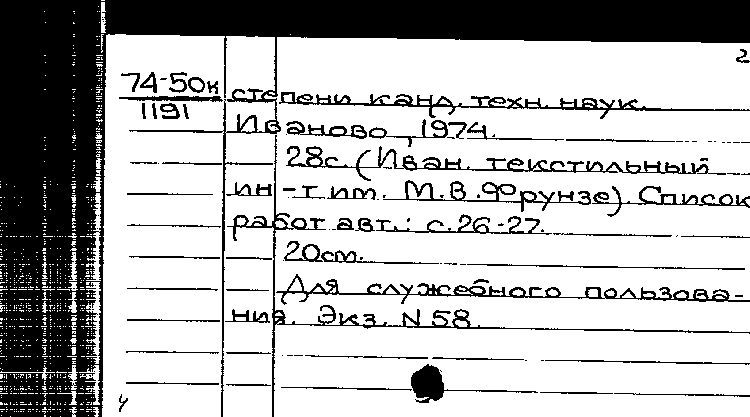 2
74-50к степени канд. техн. наук.
1191 Иваново, 1974.
28с. (Иван. текстильный
ин-т им. М.В.Фрунзе). Список
работ авт.: с.26-27.
20см.
Для служебного пользова-
ния. Экз. N 58.